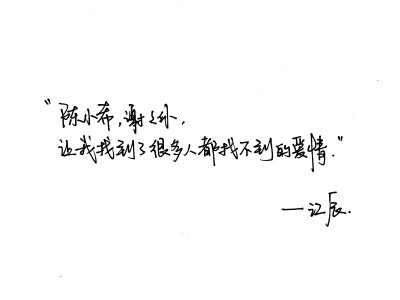 "陈小希，谢谢你，
让我找到了很多人都找不到的爱情."
——江辰.